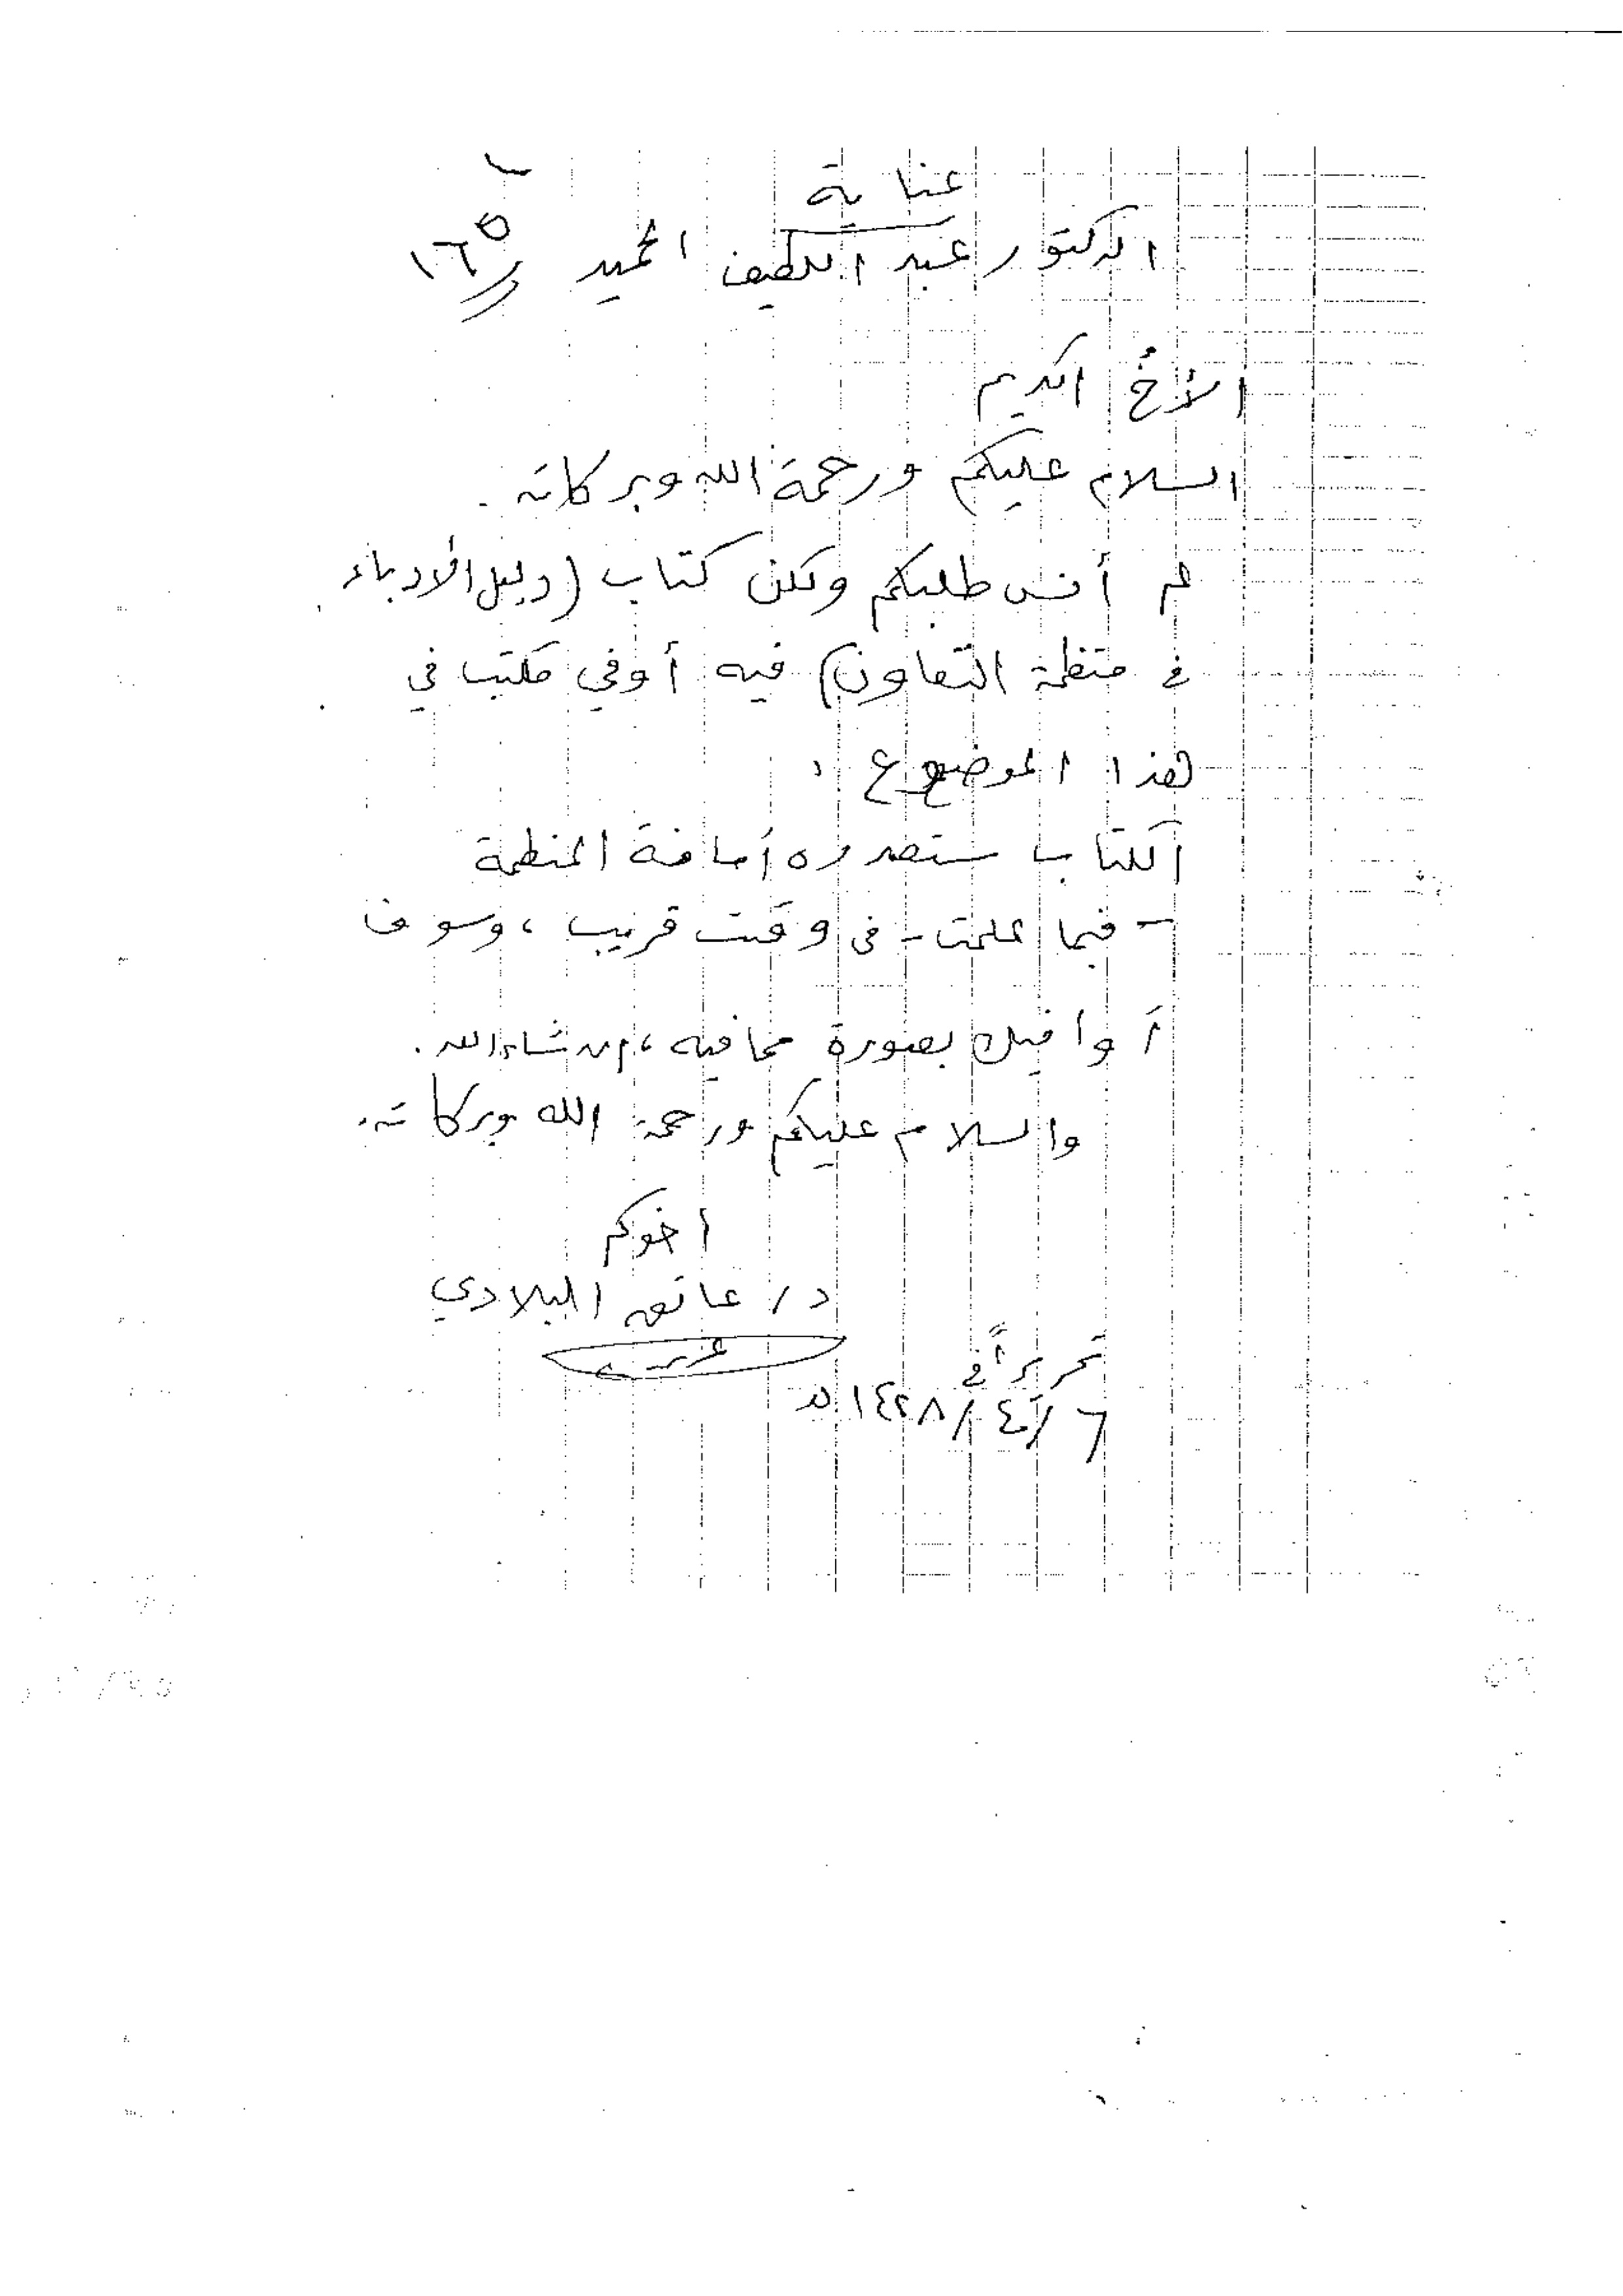 عناية
الدكتور عبد اللطيف الحميد
الأخ الكريم
السلام عليكم ورحمة الله وبركاته .
لم أنس طلبكم ولكن كتاب (دليل الأدباء
في منظمة التعاون) فيه أوفي مكتب في
هذا الموضوع .
الكتاب ستصدره أمانة المنظمة
- فيما علمت - في وقت قريب ، وسوف
أوافيك بصورة مما فيه ، إن شاء الله .
والسلام عليكم ورحمة الله وبركاته .
أخوكم
د / عاتق البلادي
تحريراً في
٦ / ٤ / ١٤٢٨ هـ